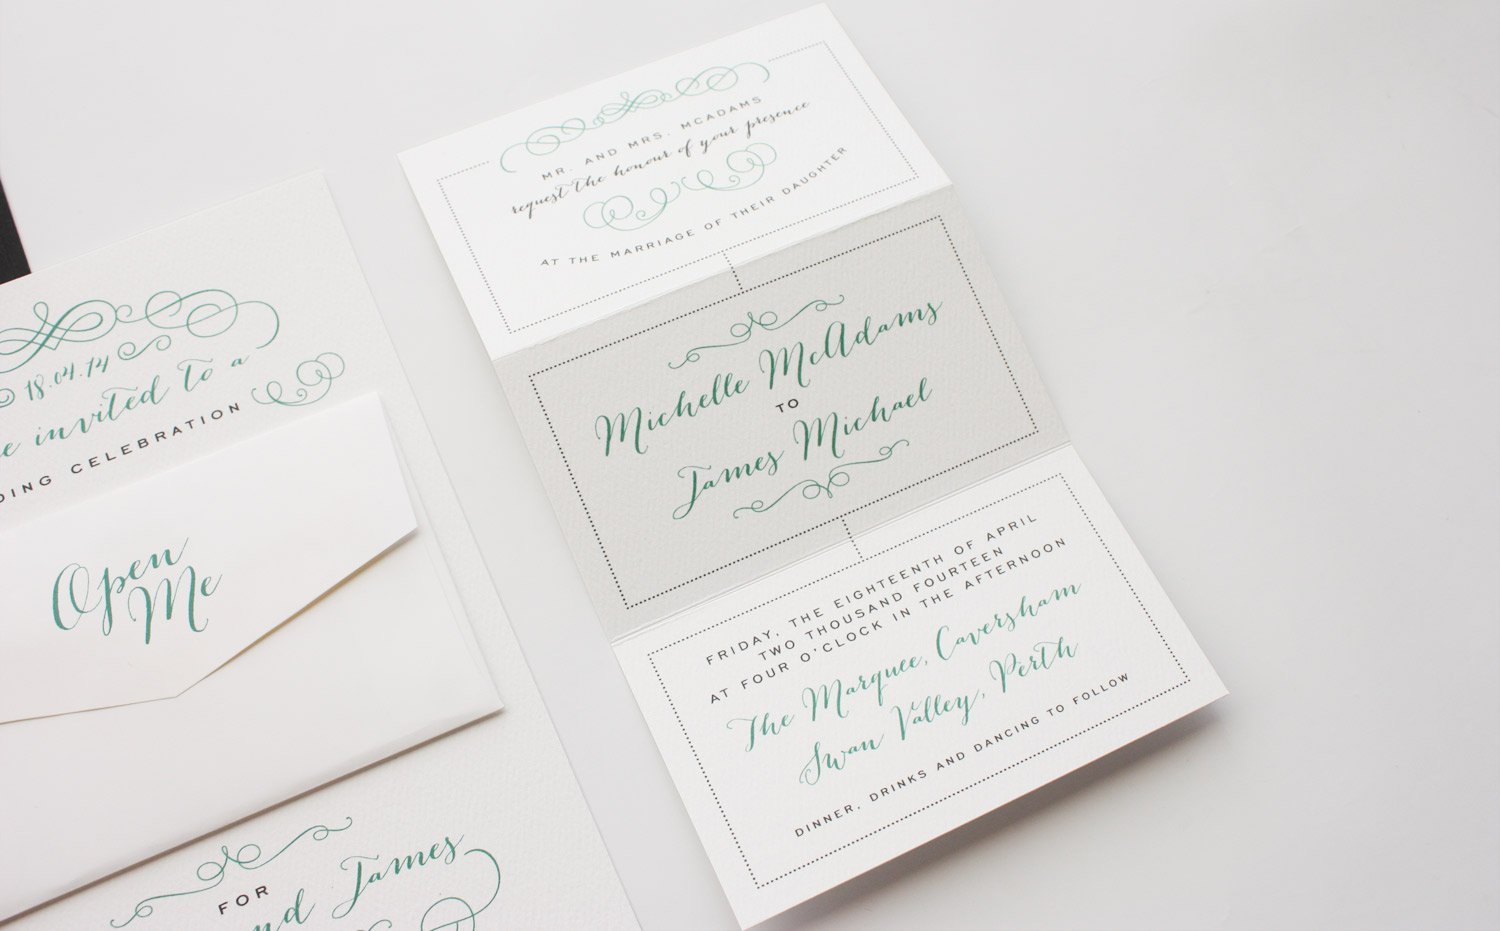 18.04.14
invited to a
CELEBRATION
Open
Me
FOR
James
MR. AND MRS. MCADAMS
request the honour of your presence
AT THE MARRIAGE OF THEIR DAUGHTER
Michelle McAdams
TO
James Michael
FRIDAY, THE EIGHTEENTH OF APRIL
TWO THOUSAND FOURTEEN
AT FOUR O'CLOCK IN THE AFTERNOON
The Marquee, Caversham
Swan Valley, Perth
DINNER, DRINKS AND DANCING TO FOLLOW